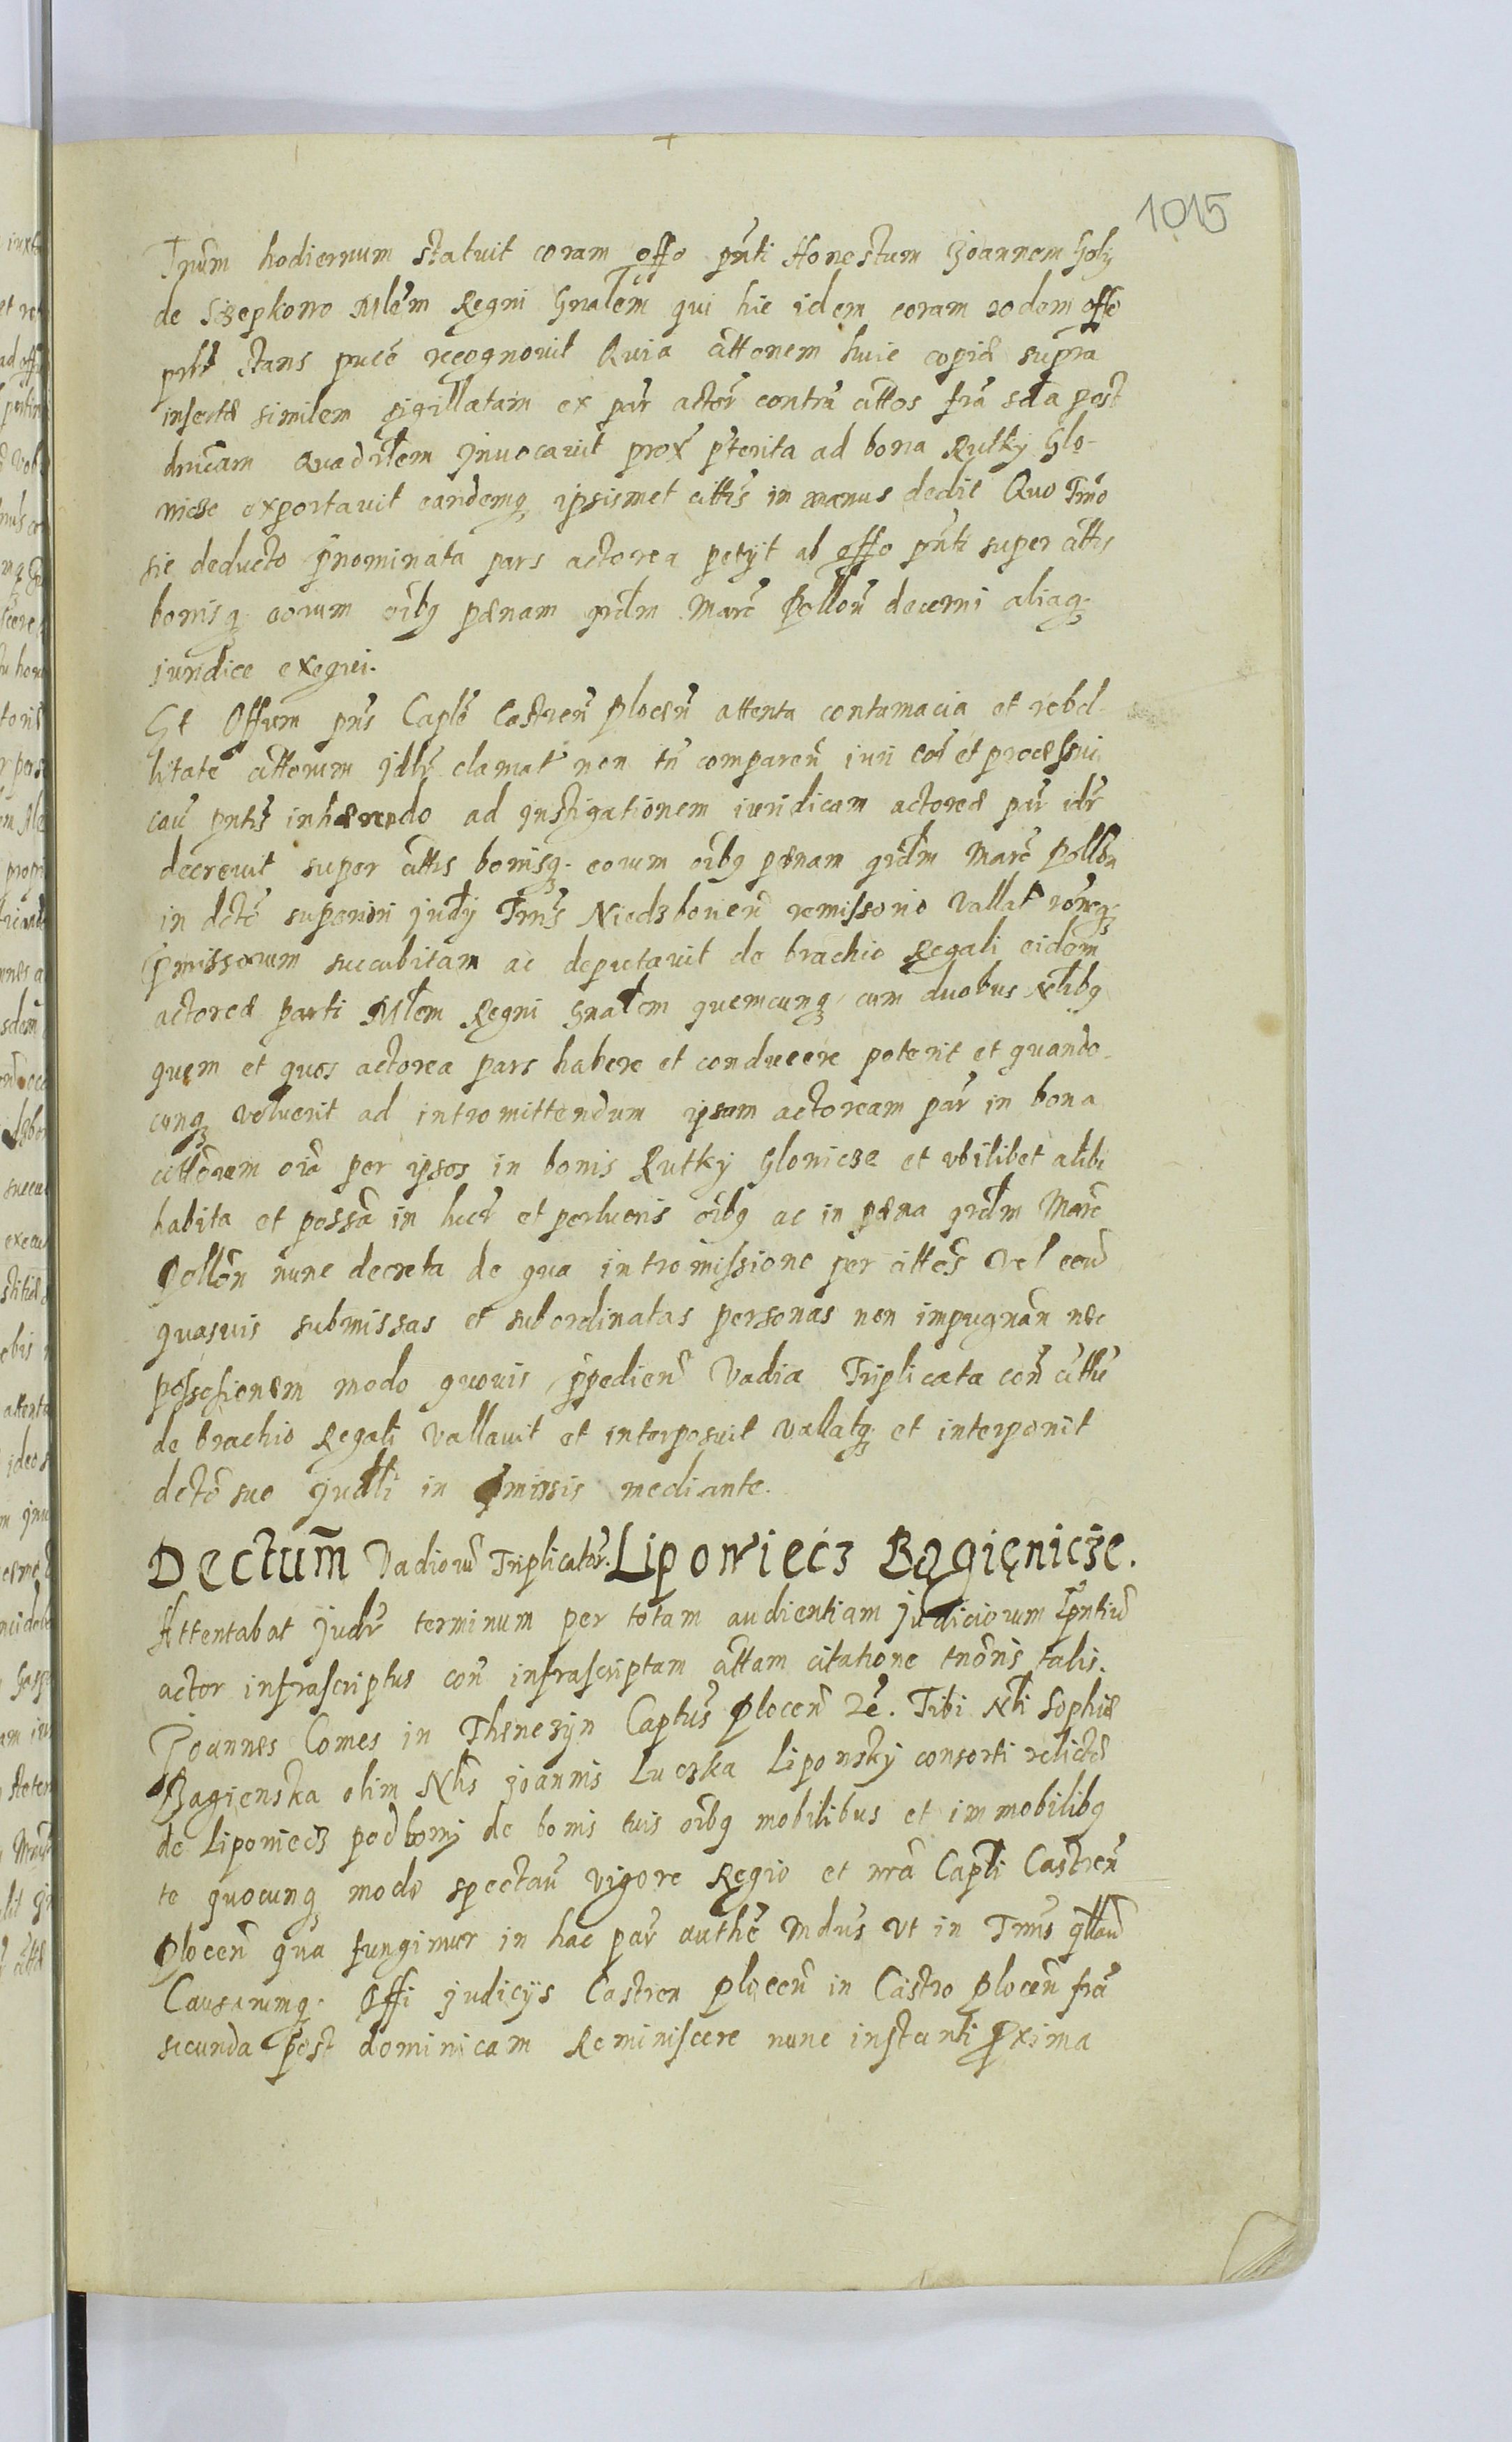 1015
Trm̃m hodiernum statuit coram offo pñti Honestum Joannem Goły
de Szepkowo Mlem Regni Gnalem qui hic idem coram eodem offo
pñt stans puce recognovit Quia cittonem huic copiæ supra
insertæ similem sigillatam ex par actor contra cittos fra scda post
dnicam Quadrlem Invocavit prox pterita ad bona Rutky Glo-
wicze exportavit eandemq ipsismet cittis in manus dedit Quo Trmo
sic deducto pnominata pars actorea petyt ab offo pñti super cittis
bonisq eorum oibq pænam grdm Marc Pollon decerni aliaq
juridice exequi.
Et Offium pñs Caple Castren Plocen attenta contumacia et rebel-
litate cittorum Idlr clamat non tn comparen iuri eor et processui
cau pntis inhærendo ad Instigationem iuridicam actoreæ par idr
decrevit super cittis bonisq eorum oibq pænam grdm Marc Pollon
in dcto superiori Judy Trmis Niedzbonien remissorio Vallat
pmissorum succubitam ac deputavit de brachio Regali eidem
actoreæ parti Mlem Regni Gnalem quemcunq cum duobus Nlibq
quem et quos actorea pars habere et conducere poterit et quando-
cunq voluerit ad intromittendum ipsam actoream par in bona
cittorum oia per ipsos in bonis Rutky Glowicze et ubilibet alibi
habita et possa in lucr et perlucris oibq ac in pæna grdm Marc
Pollon nunc decreta de qua intromissione per cittos Vel eoru
quasuis submissas et subordinatas personas non impugnan nec
possessionem modo quovis ppedien Vadia Triplicata con citto
de brachio Regali Vallavit et interposuit Vallatq et interponit
dcto suo Judlli in pmissis mediante.
Dectum̃ Vadioru Triplicator. Lipowiecz Bągięnicze.
Attentabat Judr terminum per totam audientiam Judiciorum pntiu
actor infrascriptus con infrascriptam cittam citatione tnoris talis.
Joannes Comes in Thenczyn Captus Plocen ze. Tibi Nli Sophiæ
Bagienska olim Nlis Joannis Luczka Liponsky consorti relictæ
de Lipowiecz podborny de bonis tuis oibq mobilibus et immobilibq
te quocunq modo spectan Vigore Regio et nra Capli Castren
Plocen qua fungimur in hac par authe Mdus Vt in Trmis qllau
Causarumq Offi Judicys Castren plocen in Castro plocen fra
secunda post dominicam Reminiscere nunc instanti proxima